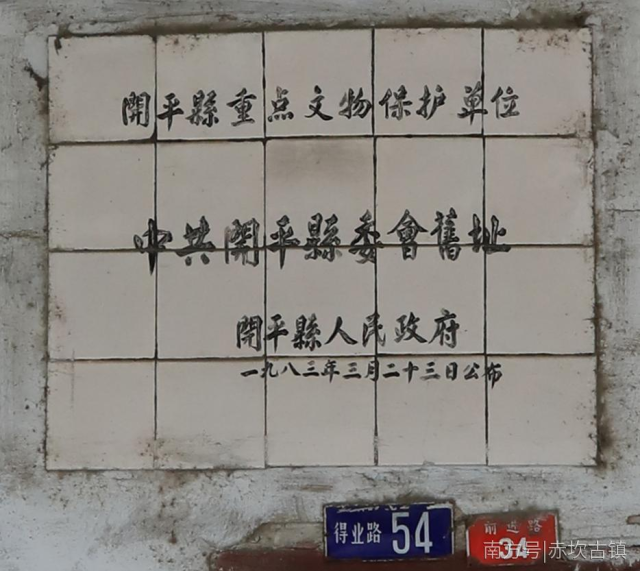 開平縣重点文物保护单位
中共開平縣委會舊址
開平縣人民政府
一九八三年三月二十三日公布
得业路 54
前进路
34
南方号|赤坎古镇